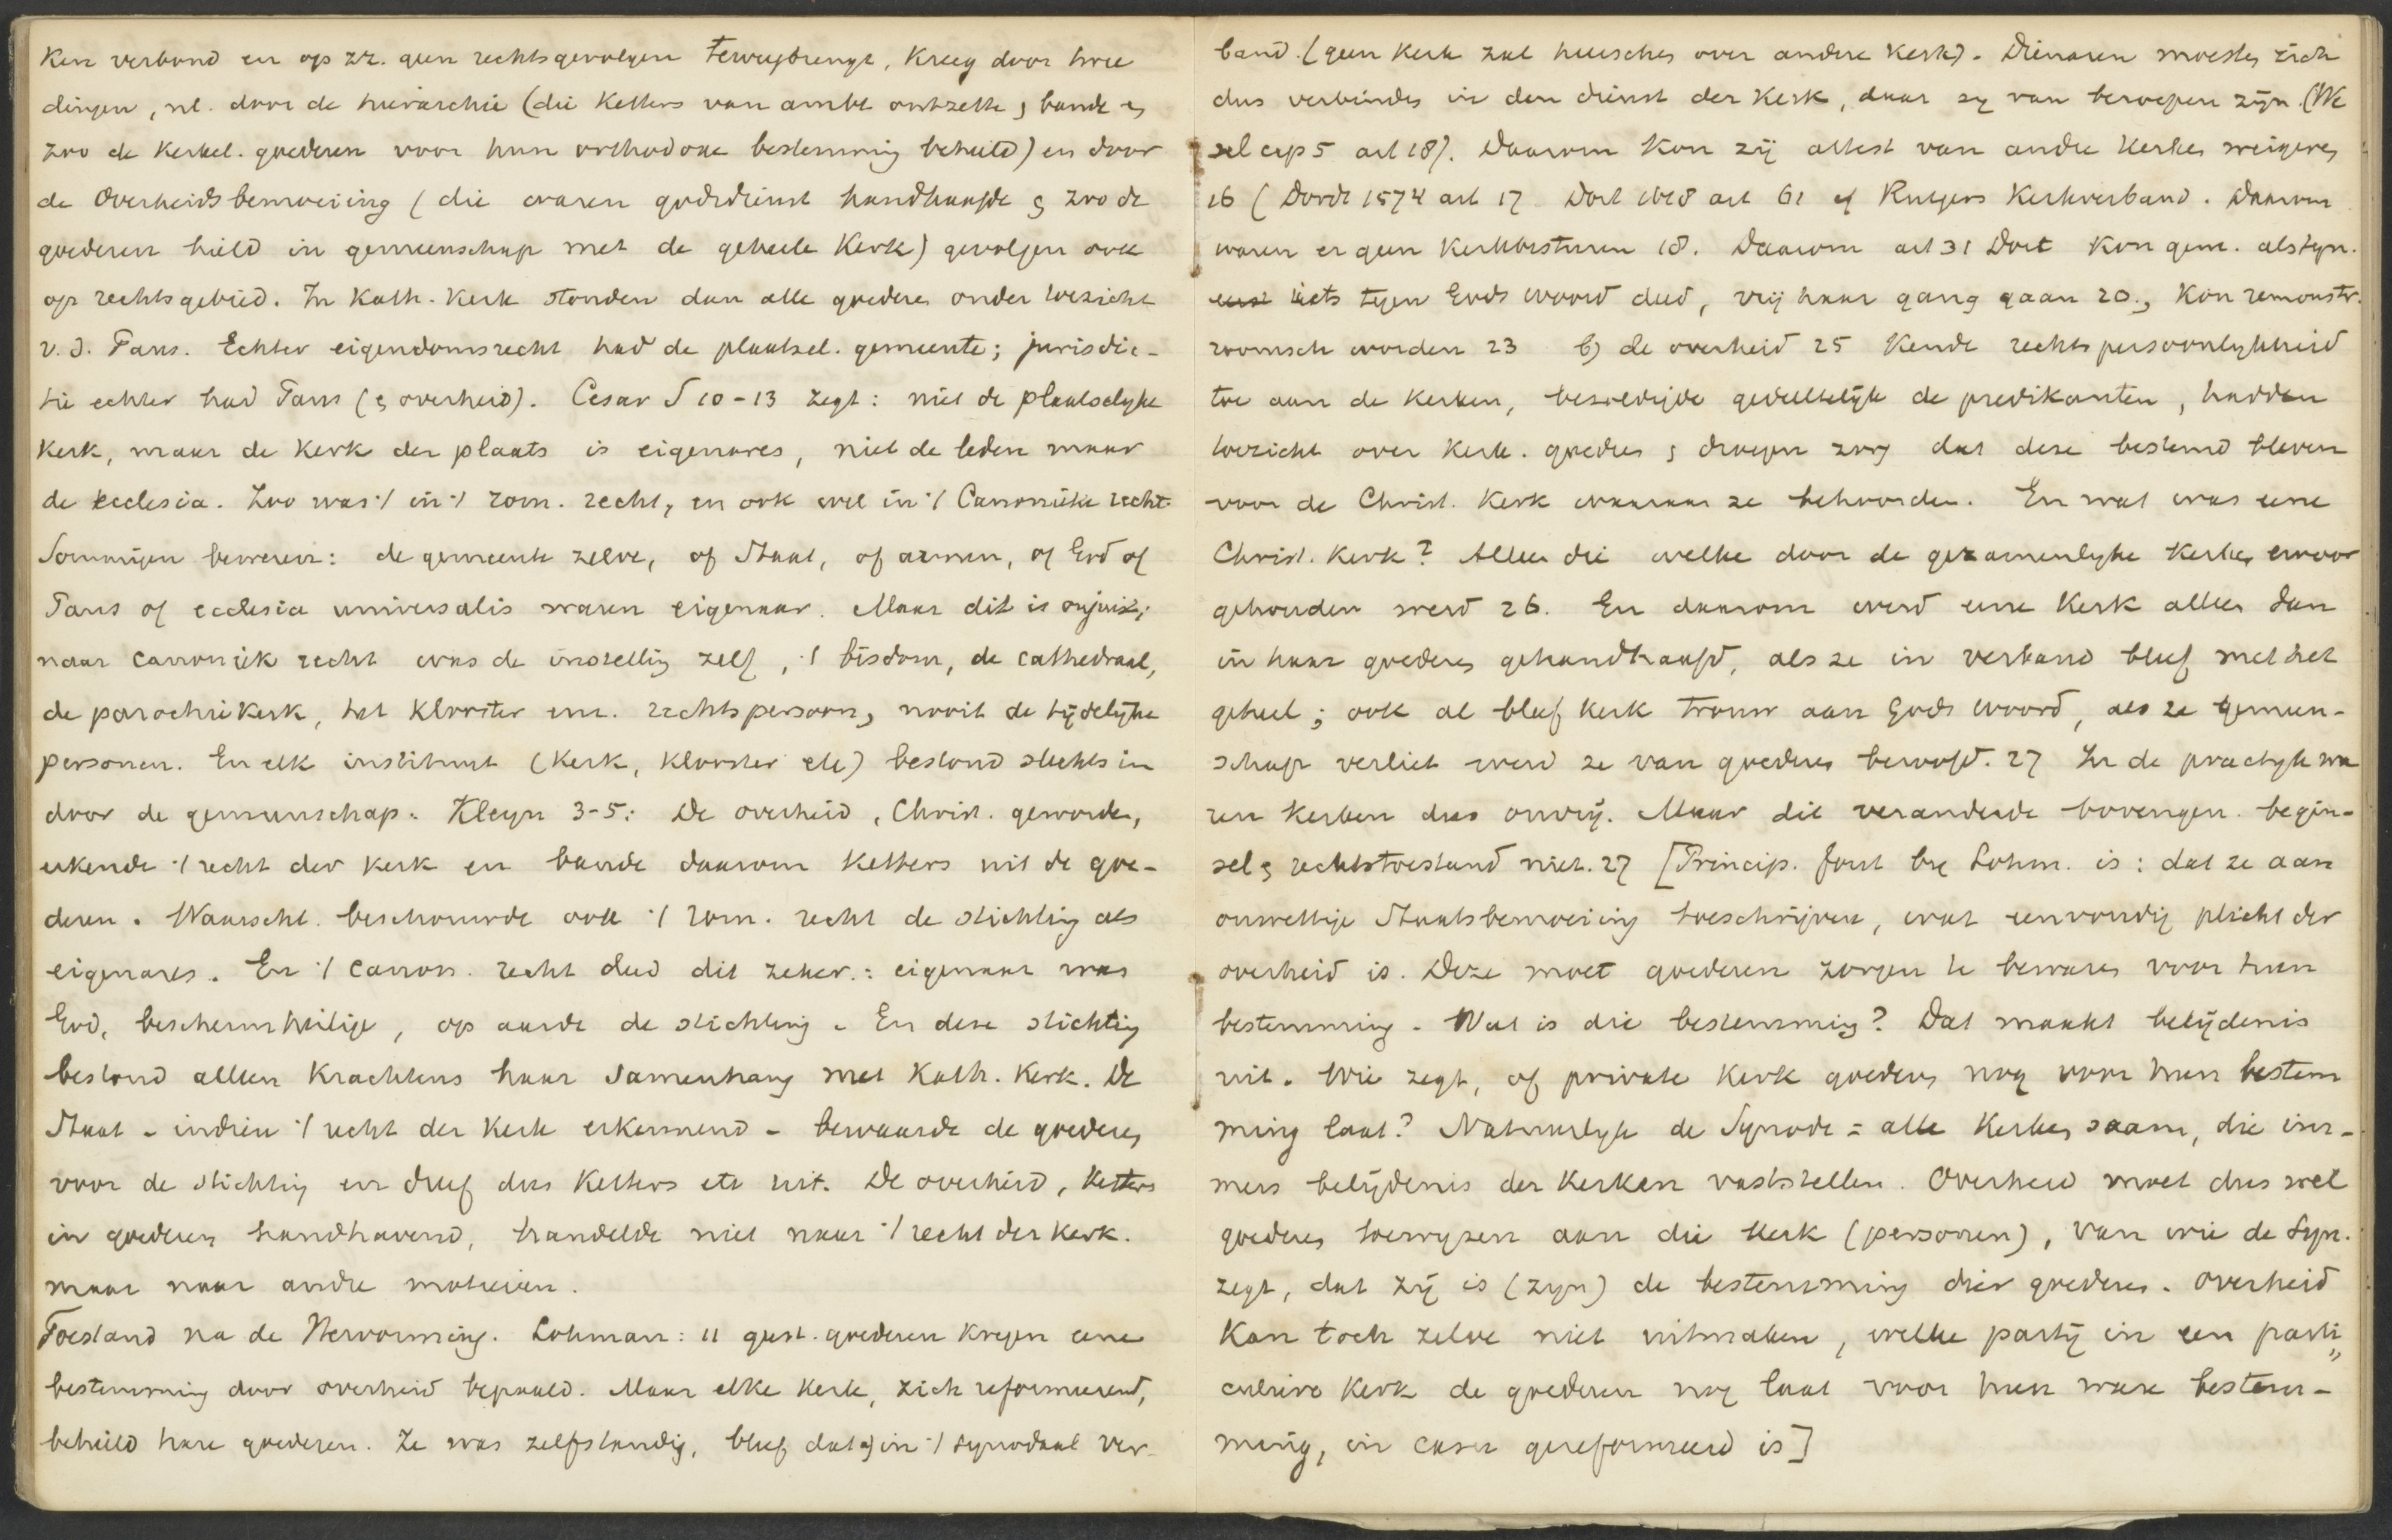 ken verband en op zz. geen rechtsgevolgen teweegbrengt, kreeg door twee
dingen, nl. door de hierarchie (die ketters van ambt ontzette & bande en
zoo de kerkel. goederen voor hun orthodoxe bestemming behield) en door
de overheidsbemoeiing (die waren godsdienst handhaafde & zoo de
goederen hield in gemeenschap met de geheele Kerk) gevolgen ook
op rechtsgebied. In Kath. Kerk stonden dan alle goederen onder toezicht
v. d. Paus. Echter eigendomsrecht had de plaatsel. gemeente; jurisdic-
tie echter had Paus (& overheid). Cesar § 10-13 zegt: niet de plaatselyke
Kerk, maar de Kerk der plaats is eigenares, niet de leden maar
de ecclesia. Zoo was 't in 't rom. recht, en ook wel in 't Canonieke recht.
Sommigen beweren: de gemeente zelve, of Staat, of armen, of God of
Paus of ecclesia universalis waren eigenaar. Maar dit is onjuist;
naar canoniek recht was de instelling zelf, 't bisdom, de cathedraal,
de parochiekerk, het klooster enz. rechtspersoon, nooit de tijdelijke
personen. En elk instituut (Kerk, Klooster etc) bestond slechts in
door de gemeenschap. Kleyn 3-5: De overheid, Christ. geworden,
erkende 't recht der kerk en bande daarom ketters uit de goe-
deren. Waarschl. beschouwde ook 't rom. recht de stichting als
eigenares. En 't canon. recht deed dit zeker: eigenaar was
God, beschermheilige, op aarde de stichting. En deze stichting
bestond alleen krachtens haar samenhang met Kath. Kerk. De
Staat - indien 't recht der Kerk erkennend - bewaarde de goederen
voor de stichting en dreef dus ketters etc uit. De overheid, ketters
in goederen handhavend, handelde niet naar 't recht der kerk.
maar naar andre motieven.
Toestand na de Hervorming. Lohman: 11 geest. goederen kregen eene
bestemming door overheid bepaald. Maar elke Kerk, zich reformeerend,
behield hare goederen. Ze was zelfstandig, bleef dat a) in 't synodaal ver-
band. (geen Kerk zal heerschen over andere Kerk). Dienaren moesten zich
dus verbinden in den dienst der Kerk, daar zy van beroepen zijn. (We
zel cap 5 art 18). Daarom kon zij attest van andre Kerken weigeren
16 (Dordt 1574 art 17 Dort 1618 art 61 cf Rutgers Kerkverband. Daarom
waren er geen Kerkbesturen 18. Daarom art 31 Dort Kon gem. als syn.
iets tegen Gods woord deed, vrij haar gang gaan 20., Kon remonstr.
roomsch worden 23 b) de overheid 25 kende rechtspersoonlykheid
toe aan de Kerken, bezoldigde gedeeltelijk de predikanten, hadden
toezicht over kerk. goederen & droegen zorg dat deze bestemd bleven
voor de Christ. Kerk waaraan ze behoorden. En wat was eene
Christ. Kerk? Alleen die welke door de gezamenlyke Kerken ervoor
gehouden werd 26. En daarom werd eene Kerk alleen dan
in haar goederen gehandhaafd, als ze in verband bleef met het
geheel; ook al bleef kerk trouw aan Gods woord, als ze gemeen-
schap verliet werd ze van goederen beroofd. 27 In de practyk wa
ren Kerken dus onvrij. Maar dit veranderde bovengen. begin-
sel & rechtstoestand niet. 27 [Princip. fout by Lohm. is: dat ze aan
onwettige Staatsbemoeiing toeschrijven, wat eenvoudig plicht der
overheid is. Deze moet goederen zorgen te bewaren voor hun
bestemming. Wat is die bestemming? Dat maakt belijdenis
uit. Wie zegt, of private Kerk goederen nog voor hun bestem
ming laat? Natuurlyk de Synode = alle Kerken saam, die im-
mers belijdenis der Kerken vaststellen. Overheid moet dus wel
goederen toewyzen aan die Kerk (personen), van wie de Syn.
zegt, dat zij is (zyn) de bestemming dier goederen. Overheid
Kan toch zelve niet uitmaken, welke partij in een parti
culiere Kerk de goederen nog laat voor hun ware bestem-
ming, in casu gereformeerd is]